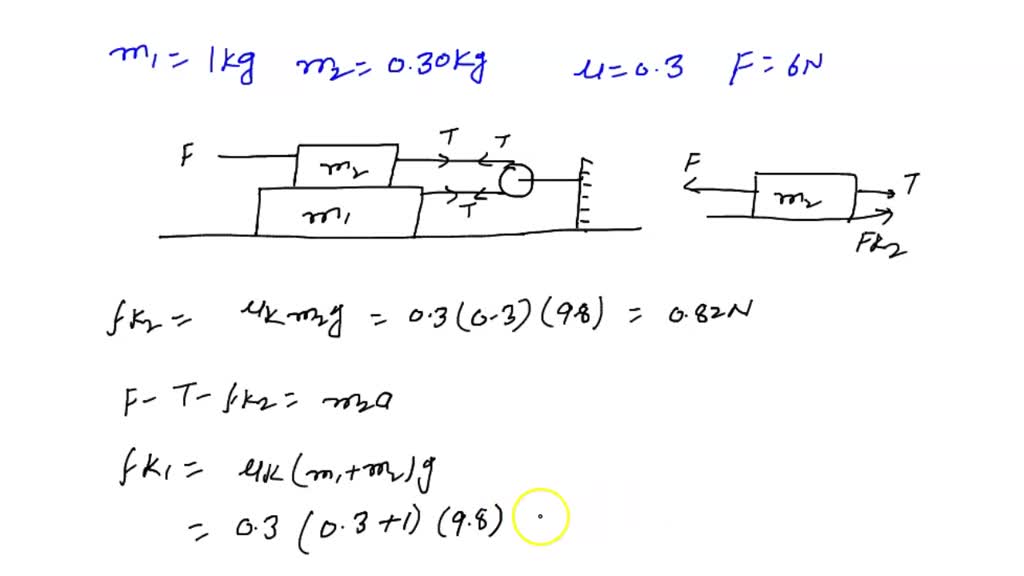 m₁ = 1kg m₂ = 0.30kg μ = 0.3 F = 6N
F m₂ T T
m₁ T
F m₂ T
Fk₂
fk₂ = μk m₂g = 0.3(0.3)(98) = 0.82N
F - T - fk₂ = m₂a
fk₁ = μk(m₁+m₂)g
= 0.3 (0.3+1) (9.8)